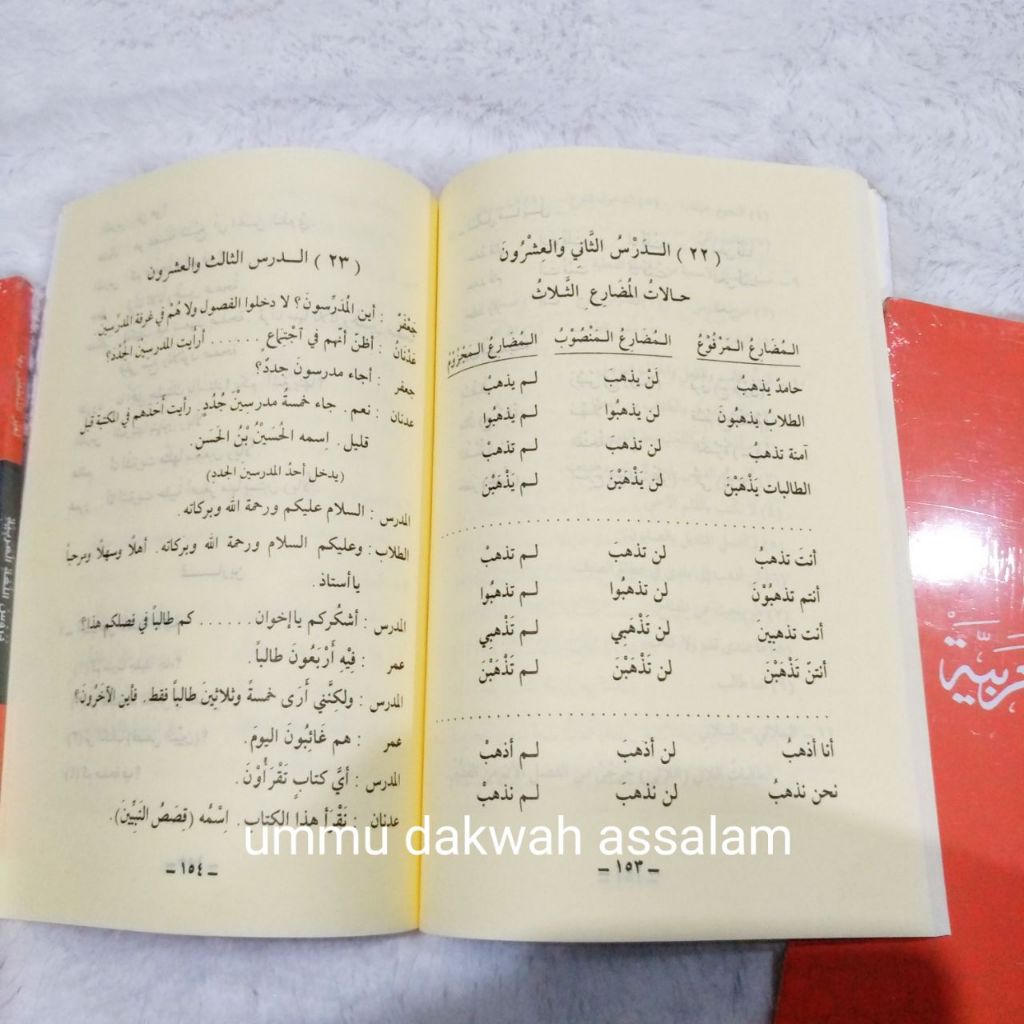 ( ٢٢ ) الـدَّرْسُ الثَّانِي وَالعِشْرُونَ
حـالاتُ المُضَارِعِ الثَّـلاثُ
الـمُضَارِعُ الـمَرْفُوْعُ الـمُضَارِعُ الـمَنْصُوْبُ الـمُضَارِعُ الـمَجْزُوْمُ
حامدٌ يذهبُ لَنْ يذهبَ لـم يذهبْ
الطلابُ يذهبُونَ لن يذهبُوا لـم يذهبُوا
آمنة تذهبُ لن تذهبَ لـم تذهبْ
الطالبات يَذْهَبْنَ لن يَذْهَبْنَ لـم يَذْهَبْنَ
أنتَ تذهبُ لن تذهبَ لـم تذهبْ
أنتم تذهبُوْنَ لن تذهبُوا لـم تذهبُوا
أنت تذهبِينَ لن تَذْهَبِي لـم تَذْهَبِي
أنتنّ تَذْهَبْنَ لن تَذْهَبْنَ لـم تَذْهَبْنَ
أنا أذهبُ لن أذهبَ لـم أذهبْ
نحن نذهبُ لن نذهبَ لـم نذهبْ
– ١٥٣ –
( ٢٣ ) الـدرس الثالث والعشرون
جَعْفَرٌ : أين المُدَرِّسونَ؟ لا دخلوا الفصول ولا هُمْ في غرفة المدرِّسِينَ.
عَدْنَانُ : أظنّ أنّهم في اجْتِمَاعٍ . . . . . . أرأيت المدرسِيْنَ الجُدُدَ؟
جعفر : أجاء مدرسونَ جددٌ؟
عدنان : نعم. جاء خمسةُ مدرسِينَ جُدُدٍ. رأيت أَحَدَهم في المكتبة قبل
قليل. اسمه الحُسَيْنُ بْنُ الحَسَنِ.
(يدخل أحدُ المدرسينَ الجدد)
المدرس : السلام عليكم ورحمة الله وبركاته.
الطلاب : وعليكم السلام ورحمة الله وبركاته. أهلًا وسهلًا ومرحباً
يا أستاذ.
المدرس : أشكُركم يا إخوان . . . . . . كم طالباً في فصلكم هذا؟
عمر : فِيْهِ أَرْبَعُونَ طالباً.
المدرس : ولكِنَّني أَرَى خمسةً وثلاثِينَ طالباً فقط. فأين الآخَرُونَ؟
عمر : هم غَائِبُونَ اليومَ.
المدرس : أيَّ كتابٍ تَقْرَأُوْنَ.
عدنان : نَقْرَأُ هذا الكتابَ. اِسْمُه (قِصَصُ النَّبِيِّينَ).
– ١٥٤ –
ummu dakwah assalam
دروس اللغة العربية